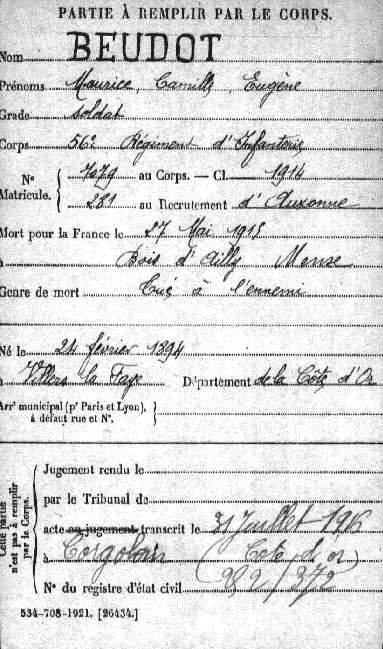 PARTIE À REMPLIR PAR LE CORPS.
Nom BEUDOT
Prénoms Maurice, Camille, Eugène
Grade soldat
Corps 56e Régiment d'Infanterie
N° Matricule. { 7079 au Corps. — Cl. 1914
281 au Recrutement d'Auxonne
Mort pour la France le 27 Mai 1915
à Bois d'Ailly Meuse
Genre de mort Tué à l'ennemi
Né le 24 février 1894
à Villers la Faye Département de la Côte d'Or
Arrt municipal (pr Paris et Lyon), à défaut rue et N°.
Cette partie n'est pas à remplir par le Corps.
Jugement rendu le
par le Tribunal de
acte ou jugement transcrit le 31 Juillet 1916
à Corgoloin (Côte d'or)
N° du registre d'état civil 989/372
534-708-1921. [26434.]